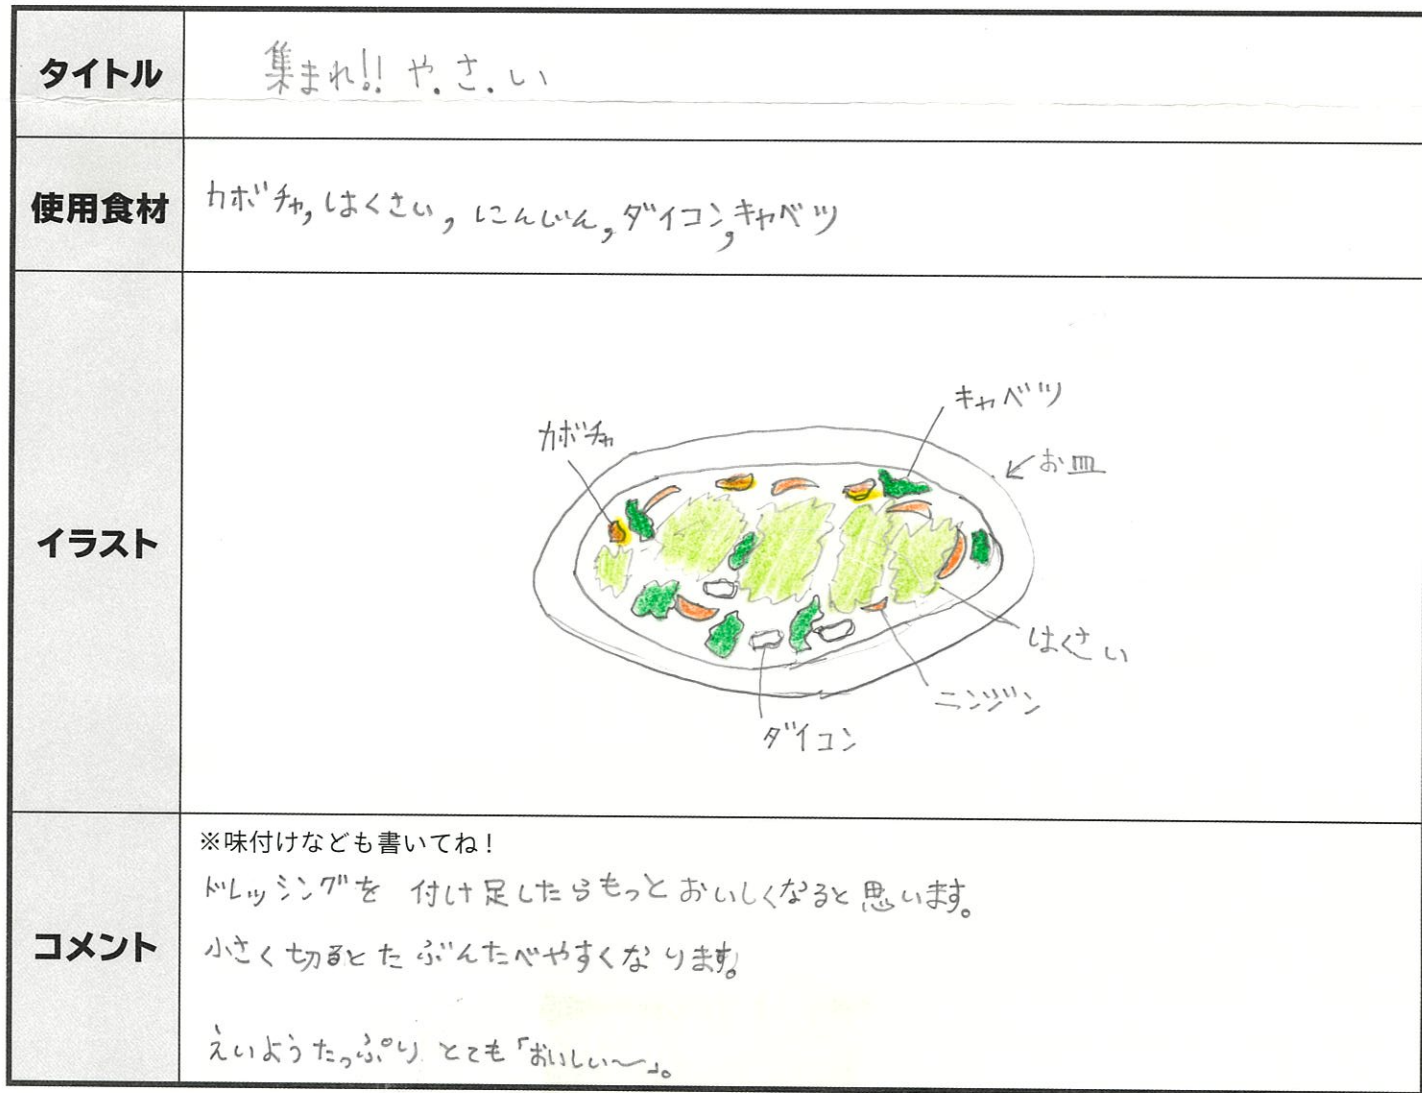 タイトル
集まれ!! や.さ.い
使用食材
カボチャ, はくさい, にんじん, ダイコン, キャベツ
イラスト
キャベツ
カボチャ
お皿
はくさい
ニンジン
ダイコン
コメント
※味付けなども書いてね!
ドレッシングを 付け足したらもっとおいしくなると思います。
小さく切るとたぶんたべやすくなります。
えいようたっぷり とても「おいしい〜」。